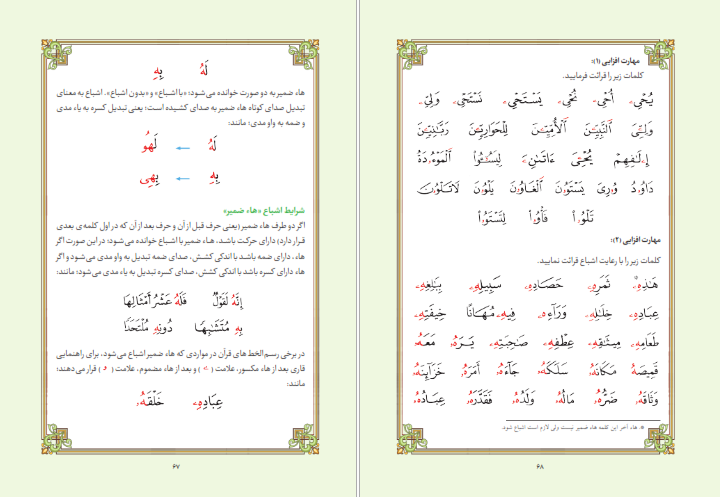 لَهُ    بِهِ
هاء ضمیر به دو صورت خوانده می‌شود: «با اشباع» و «بدون اشباع». اشباع به معنای
تبدیل صدای کوتاه هاء ضمیر به صدای کشیده است؛ یعنی تبدیل کسره به یاء مدی
و ضمه به واو مدی؛ مانند:
لَهُ ← لَهُو
بِهِ ← بِهِی
شرایط اشباع «هاء ضمیر»
اگر دو طرف هاء ضمیر (یعنی حرف قبل از آن و حرف بعد از آن که در اول کلمه‌ی بعدی
قرار دارد) دارای حرکت باشد، هاء ضمیر با اشباع خوانده می‌شود؛ در این صورت اگر
هاء، دارای ضمه باشد با اندکی کشش، صدای ضمه تبدیل به واو مدی می‌شود و اگر
هاء دارای کسره باشد با اندکی کشش، صدای کسره تبدیل به یاء مدی می‌شود؛ مانند:
إِنَّهُ لَقَوْلُ    فَلَهُ عَشْرُ أَمْثَالِهَا
بِهِ مُتَشَـٰبِهًا    دُونِهِ مُلْتَحَدًا
در برخی رسم‌الخط‌های قرآن در مواردی که هاء ضمیر اشباع می‌شود، برای راهنمایی
قاری بعد از هاء مکسور، علامت (ے) و بعد از هاء مضموم، علامت (و) قرار می‌دهند؛
مانند:
عِبَادِهِۦ    خَلَقَهُۥ
۶۷
مهارت افزایی (۱):
کلمات زیر را قرائت فرمایید.
یُحْیِۦ    أُحْیِۦ    نُحْیِۦ    یَسْتَحْیِۦ    نَسْتَحْیِۦ    وَلِیِّۦ
وَلِـِّۧیَ    ٱلنَّبِیِّـۧنَ    ٱلْأُمِّیِّـۧنَ    لِلْحَوَارِیِّـۧنَ    رَبَّـٰنِیِّـۧنَ
إِۦلَـٰفِهِمْ    یُحْـِۧیَ    ءَاتَـٰنِۦَ    لِیَسُـۥۤـُٔوا۟    ٱلْمَوْءُۥدَةُ
دَاوُۥدُ    وُۥرِیَ    یَسْتَوُۥنَ    ٱلْغَاوُۥنَ    یَلْوُۥنَ    لَاتَلْوُۥنَ
تَلْوُۥا۟    فَأْوُۥا۟    لِتَسْتَوُۥا۟
مهارت افزایی (۲):
کلمات زیر را با رعایت اشباع قرائت نمایید.
هَـٰذِهِۦ*    ثَمَرِهِۦ    حَصَادِهِۦ    سَبِیلِهِۦ    بِبَـٰلِغِهِۦ
عِبَادِهِۦ    خِلَـٰلِهِۦ    وَرَآءِهِۦ    فِیهِۦ مُهَانًا    خِیفَتِهِۦ
طَعَامِهِۦ    مِیثَـٰقِهِۦ    عِطْفِهِۦ    صَـٰحِبَتِهِۦ    یَرَهُۥ    مَعَهُۥ
قَمِیصَهُۥ    مَکَانَهُۥ    سَلَکَهُۥ    جَآءَهُۥ    أَمَرَهُۥ    خَزَآئِنَهُۥ
وَثَاقَهُۥ    ضُرَّهُۥ    مَالُهُۥ    وَلَدُهُۥ    فَقَدَّرَهُۥ    عِبَادُهُۥ
* هاء آخر این کلمه هاء ضمیر نیست ولی لازم است اشباع شود.
۶۸